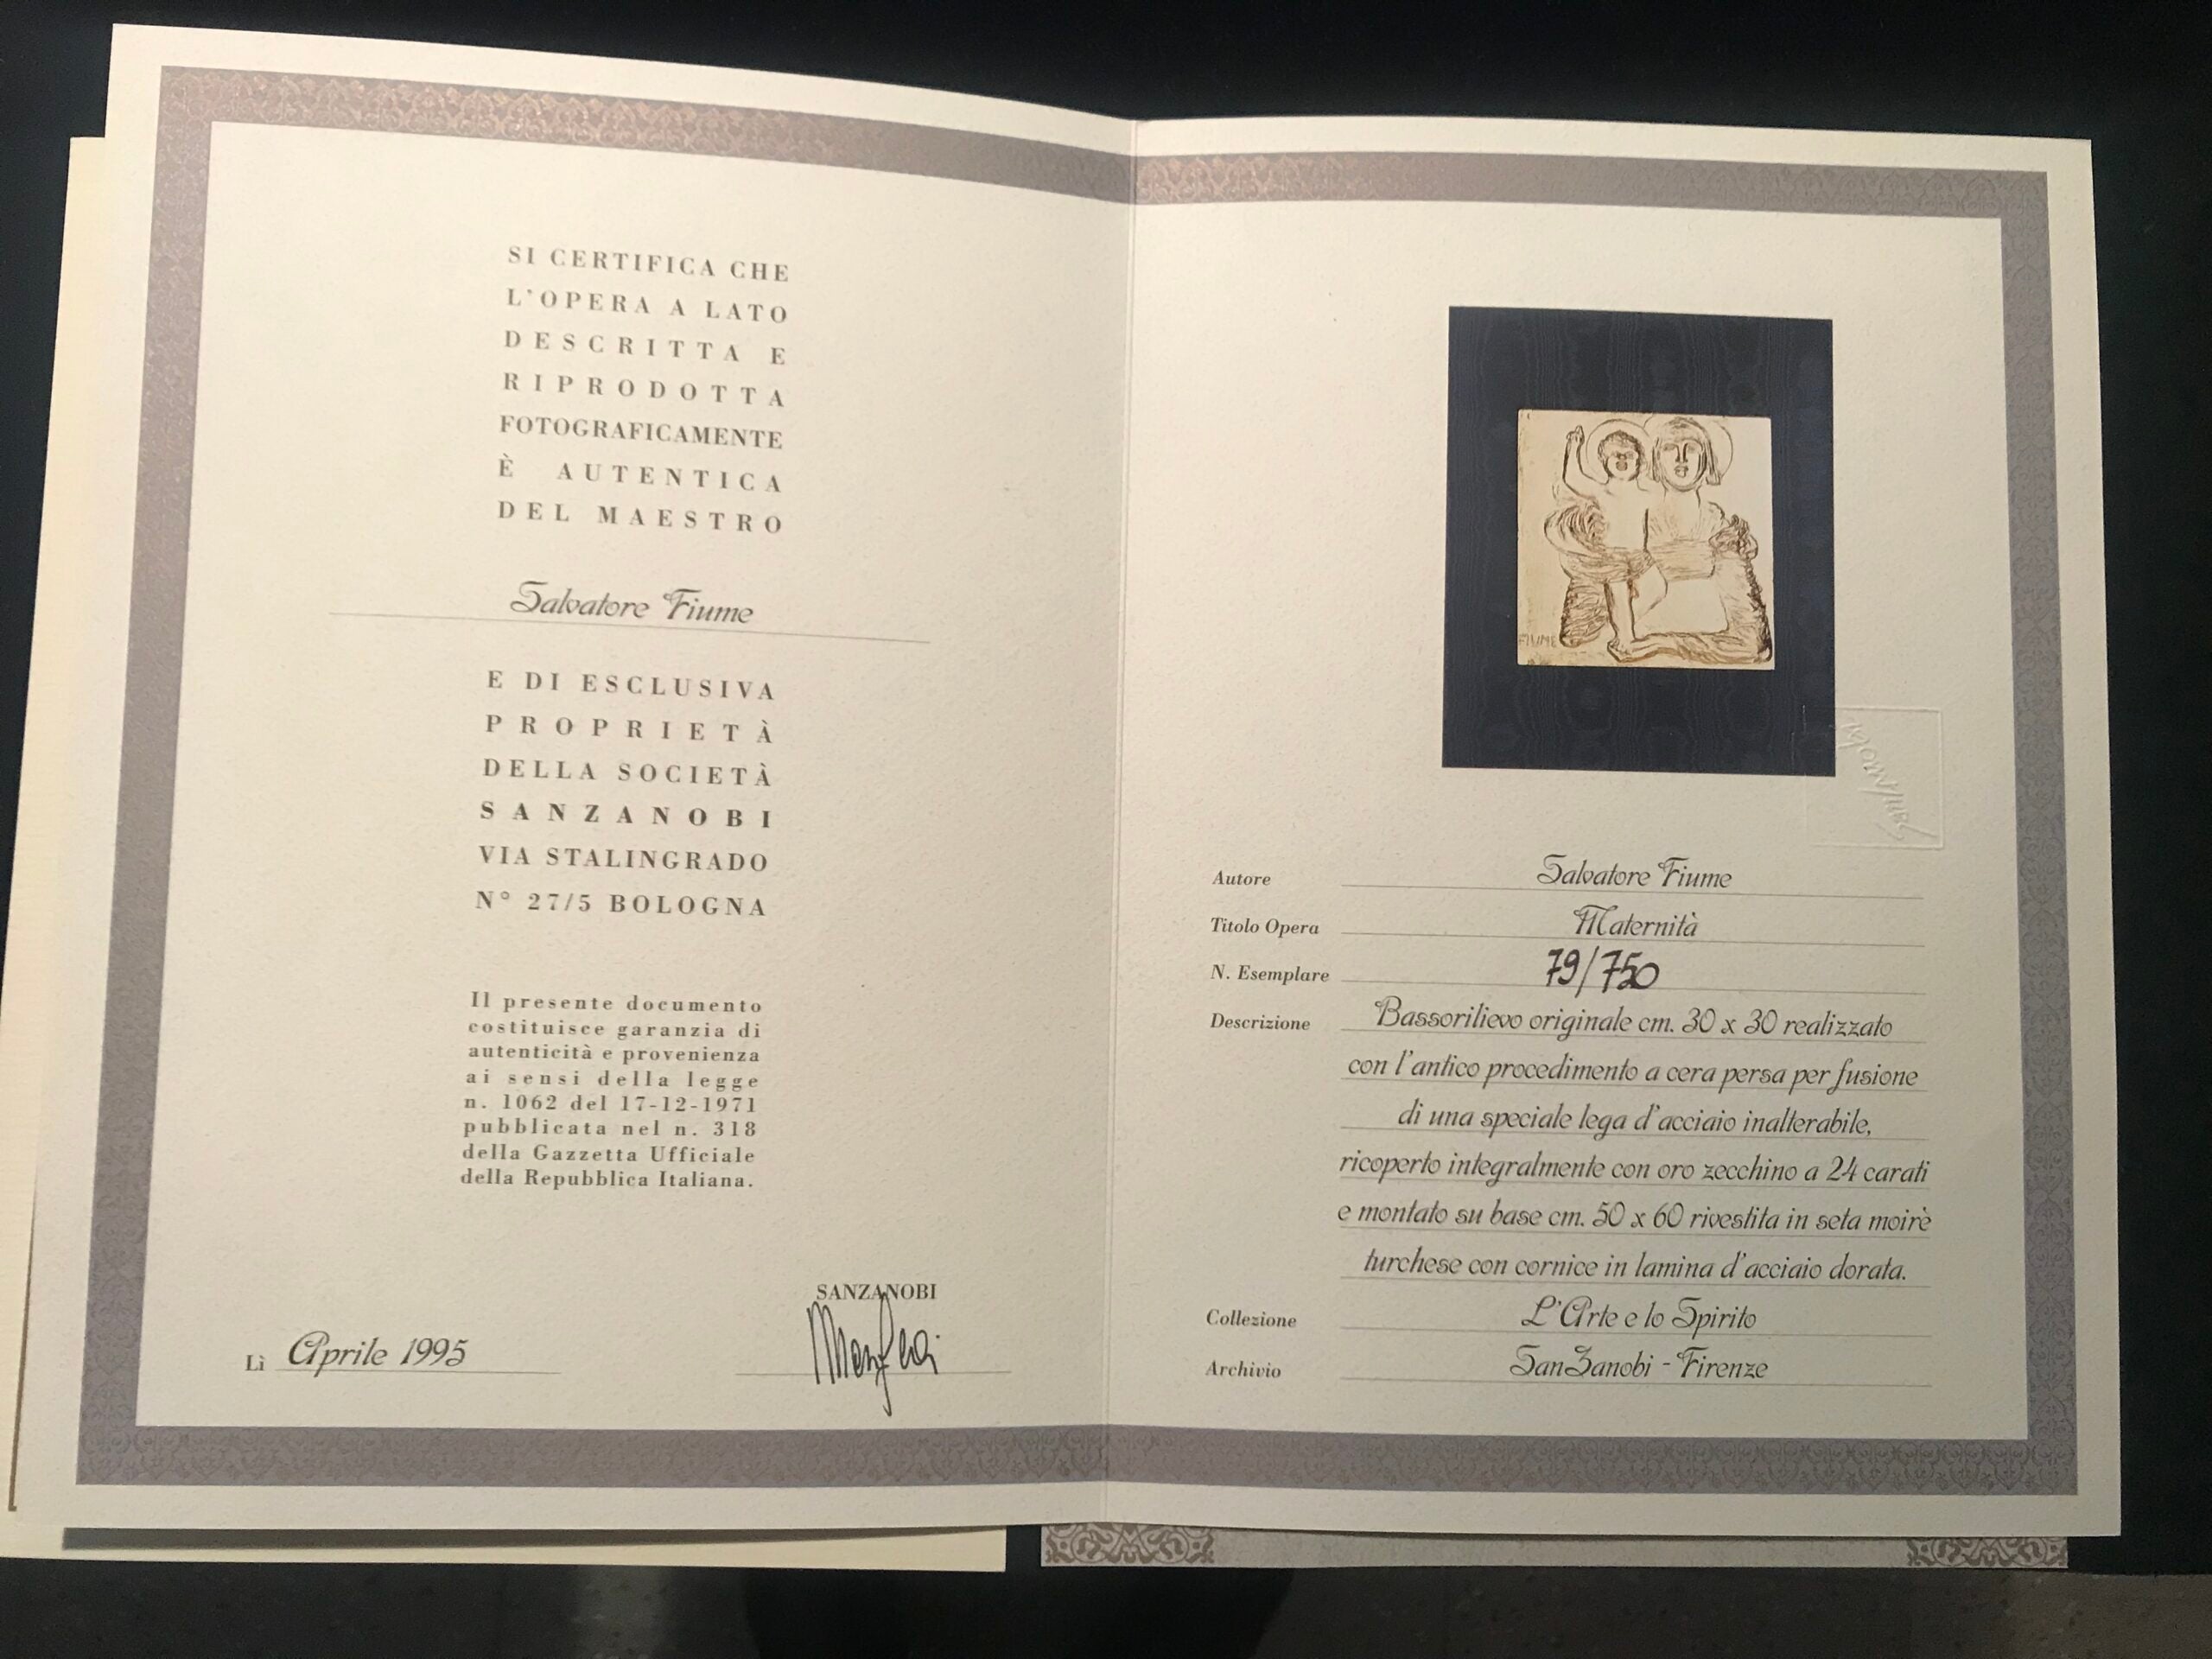 SI CERTIFICA CHE
L'OPERA A LATO
DESCRITTA E
RIPRODOTTA
FOTOGRAFICAMENTE
È AUTENTICA
DEL MAESTRO
Salvatore Fiume
E DI ESCLUSIVA
PROPRIETÀ
DELLA SOCIETÀ
SANZANOBI
VIA STALINGRADO
N° 27/5 BOLOGNA
Il presente documento
costituisce garanzia di
autenticità e provenienza
ai sensi della legge
n. 1062 del 17-12-1971
pubblicata nel n. 318
della Gazzetta Ufficiale
della Repubblica Italiana.
SANZANOBI
Lì Aprile 1995
FIUME
Autore Salvatore Fiume
Titolo Opera Maternità
N. Esemplare 79/750
Descrizione Bassorilievo originale cm. 30 x 30 realizzato
con l'antico procedimento a cera persa per fusione
di una speciale lega d'acciaio inalterabile,
ricoperto integralmente con oro zecchino a 24 carati
e montato su base cm. 50 x 60 rivestita in seta moirè
turchese con cornice in lamina d'acciaio dorata.
Collezione L'Arte e lo Spirito
Archivio SanZanobi - Firenze